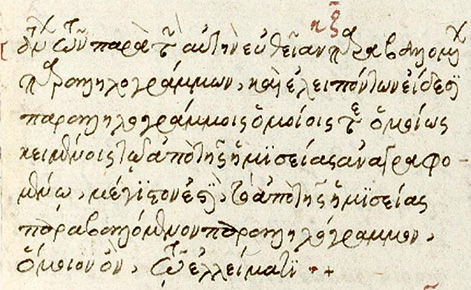 κζ
τῶν παρὰ τὴν αὐτὴν εὐθεῖαν παραβαλλομένων
παραλληλογράμμων, καὶ ἐλλειπόντων εἴδεσι
παραλληλογράμμοις ὁμοίοις τε ὁμοίως
κειμένοις τῷ ἀπὸ τῆς ἡμισείας ἀναγραφο-
μένῳ, μέγιστον ἐστὶ, τὸ ἀπὸ τῆς ἡμισείας
παραβαλλόμενον παραλληλόγραμμον,
ὅμοιον ὂν, τῷ ἐλλείματι · +